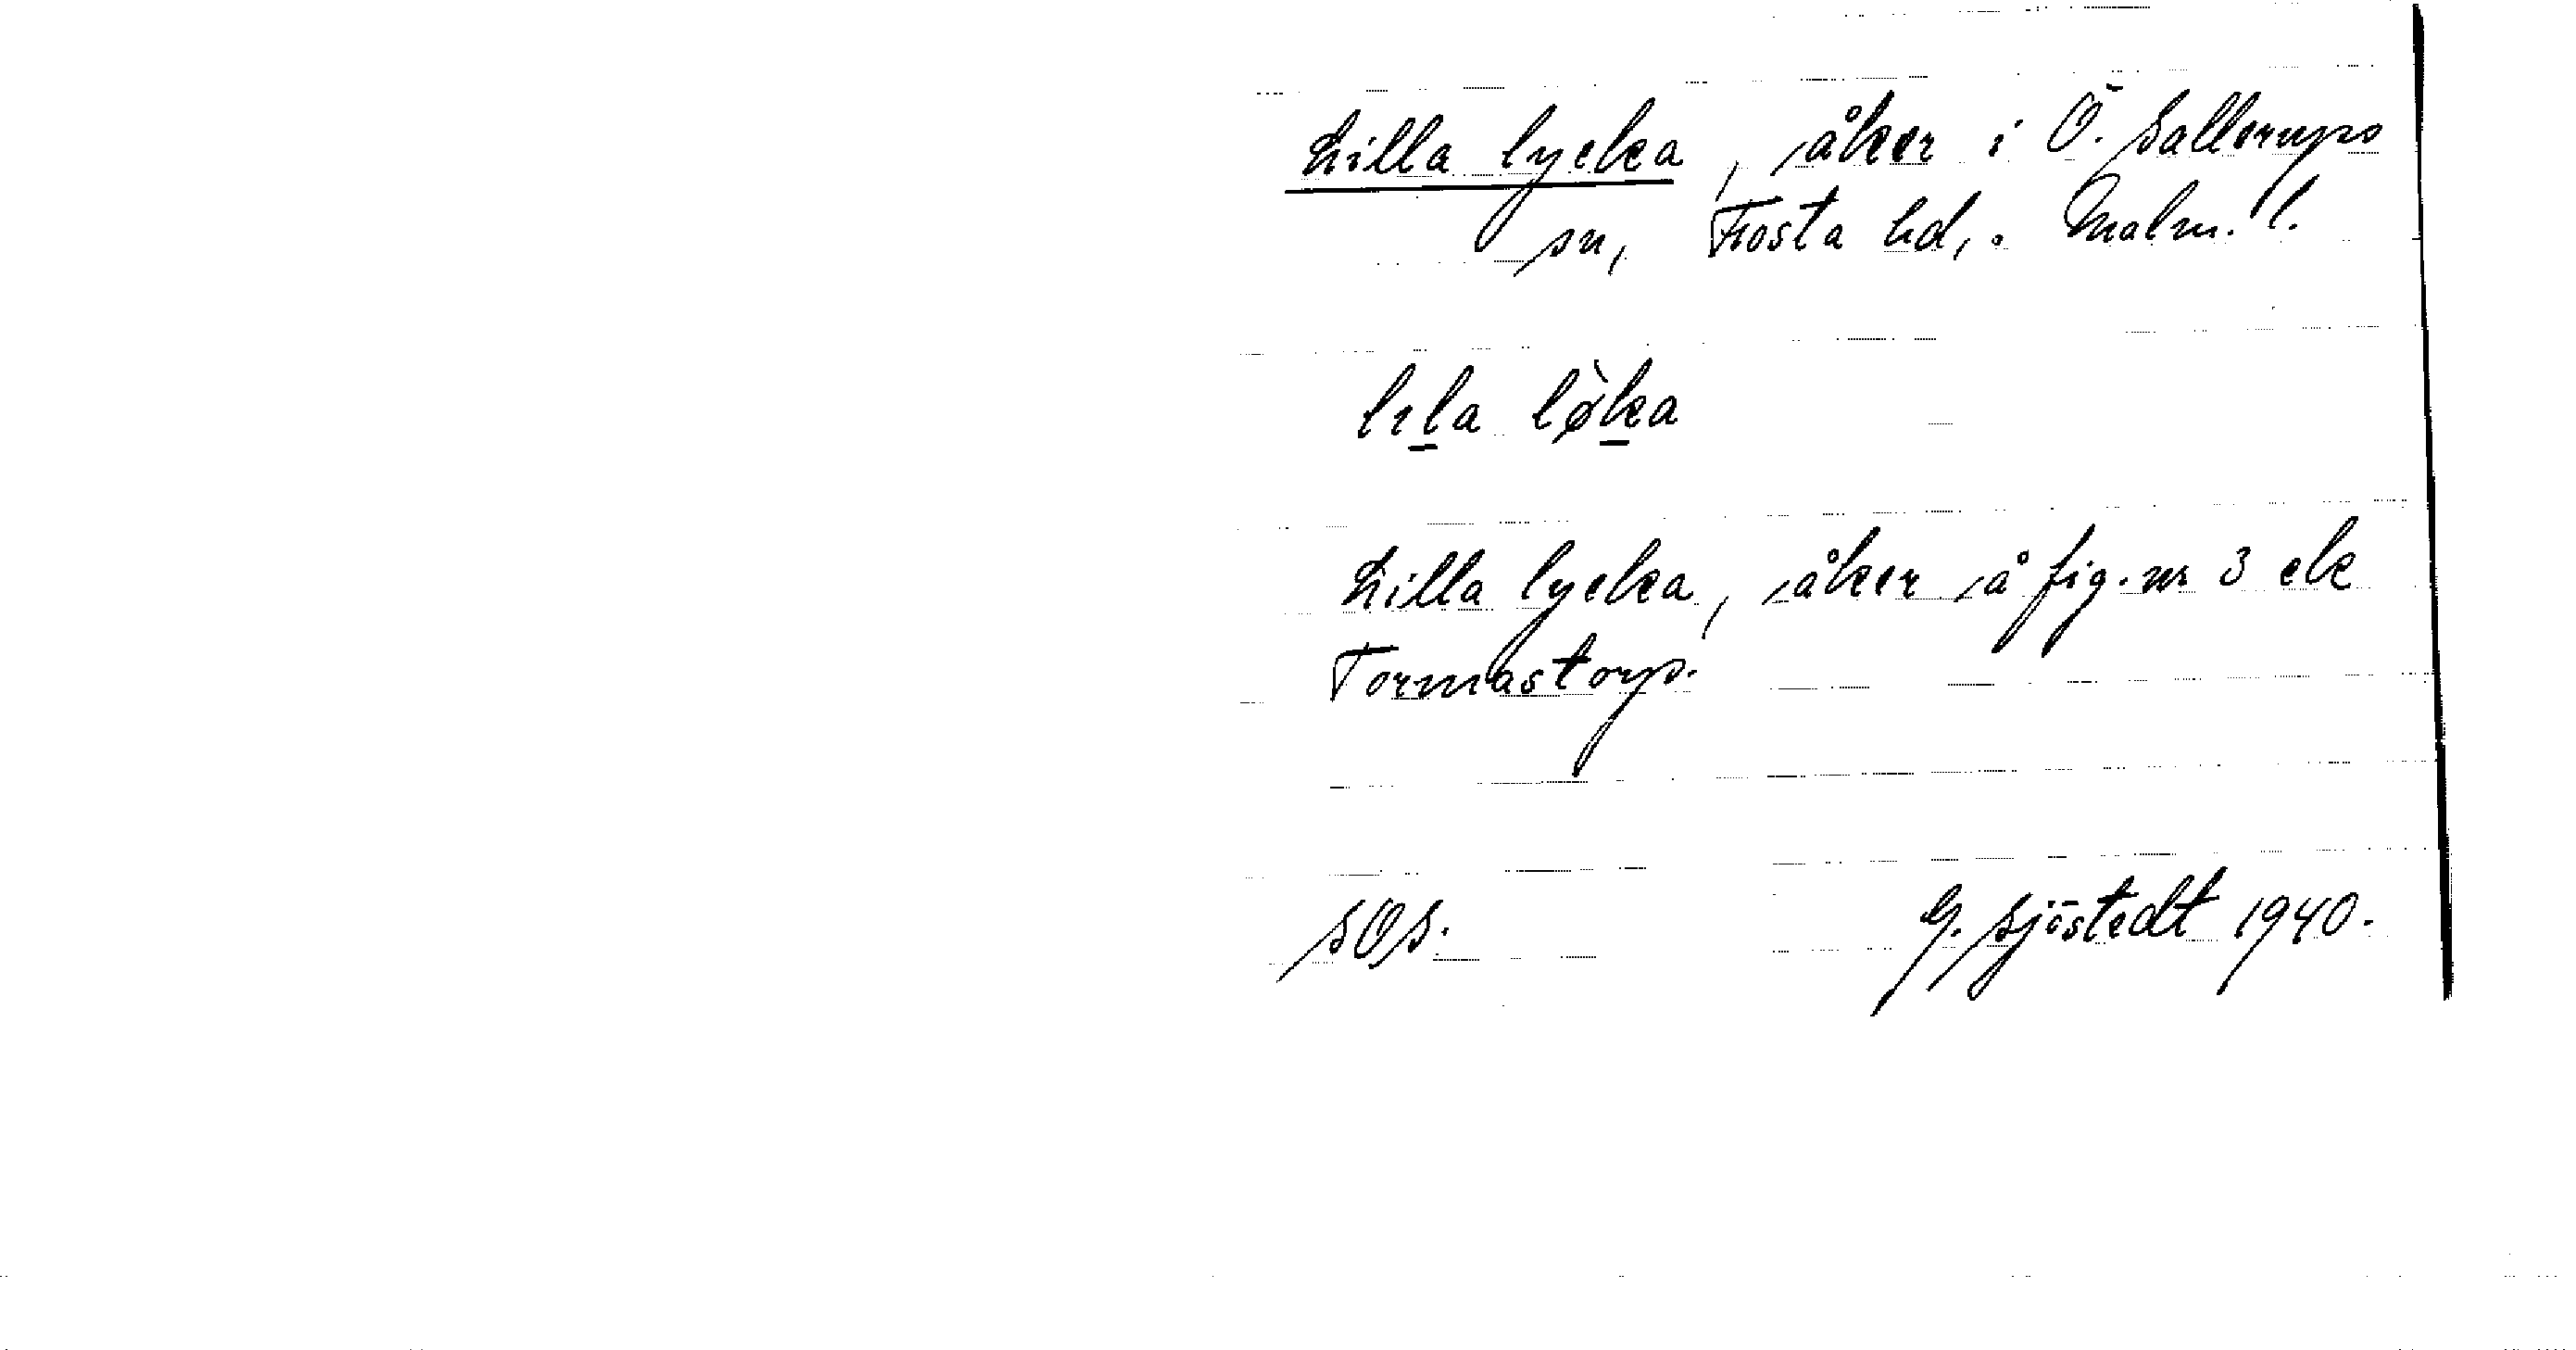 Lilla lycka, åker i Ö. Sallerups
sn, Frosta hd,. Malm. l.
lıl̲a lø̀k̲a
Lilla lycka, åker å fig. nr 3 ek
Tormastorp.
SOS. G. Sjöstedt 1940.